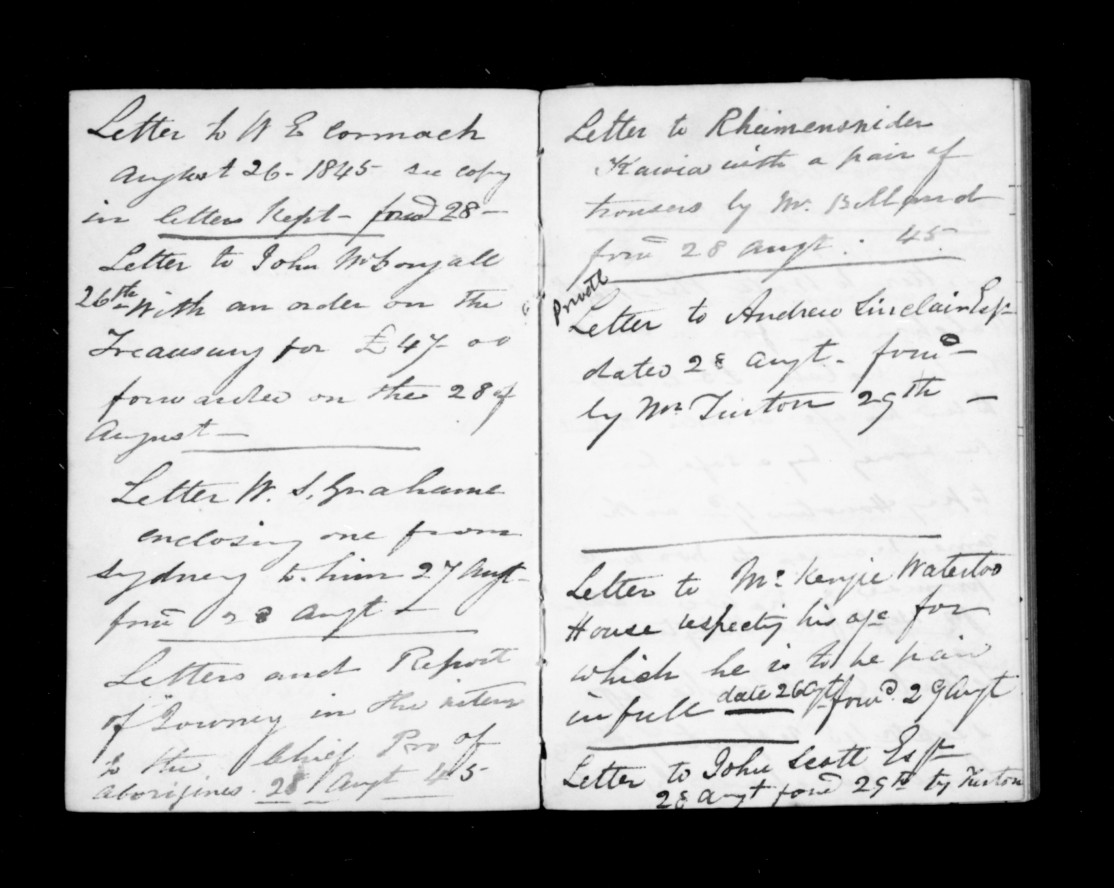 Letter to W E Cormack
August 26 - 1845 see copy
in letters kept - forwd 28 -
Letter to John McGongall
26th with an order on the
Treasury for £47-00
forwarded on the 28 of
August -
Letter W. S. Grahame
enclosing one from
Sydney to him 27 Augt -
forwd 28 Augt -
Letters and Report
of Journey in the interior
to the Chief Pro of
aborigines. 28 Augt 45
Letter to
with a pair of
trousers by Mr. Bill and
forwd 28 Augt. 45
Private
Letter to Andrew Sinclair Esqr
dated 28 Augt. forwd -
by Mr Turton 29th -
Letter to Mc Kenzie Waterloo
House respecting his a/c for
which he is to be paid
in full date 26 Agt forwd. 29 Augt
Letter to John Scott Esqr
28 Augt forwd 29th by Turton